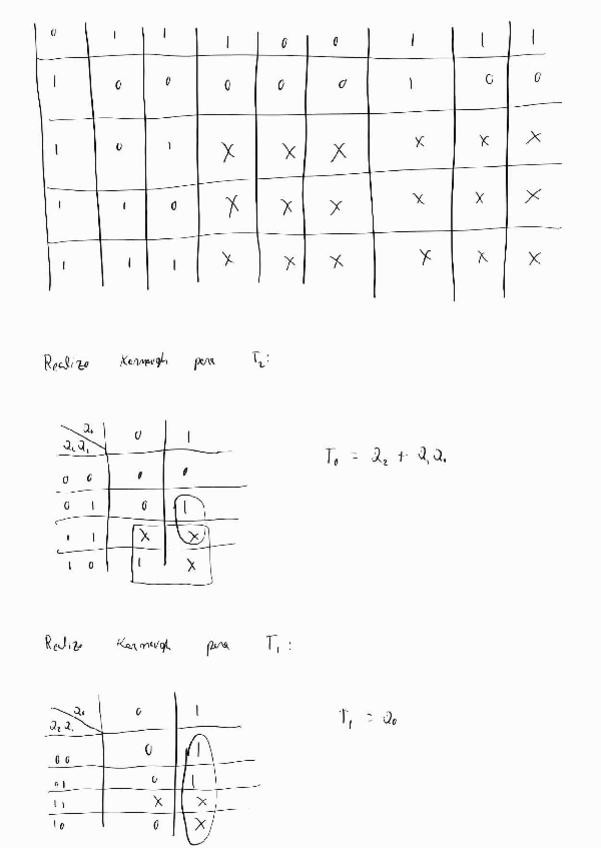 0 1 1 1 0 0 1 1 1
1 0 0 0 0 0 1 0 0
1 0 1 X X X X X X
1 1 0 X X X X X X
1 1 1 X X X X X X
Realizo Karnaugh para T₂:
Q₀ 0 1
Q₂ Q₁
0 0 0 0
0 1 0 1
1 1 X X
1 0 1 X
T₀ = Q₂ + Q₁Q₀
Realizo Karnaugh para T₁:
Q₀ 0 1
Q₂ Q₁
0 0 0 1
0 1 0 1
1 1 X X
1 0 0 X
T₁ = Q₀